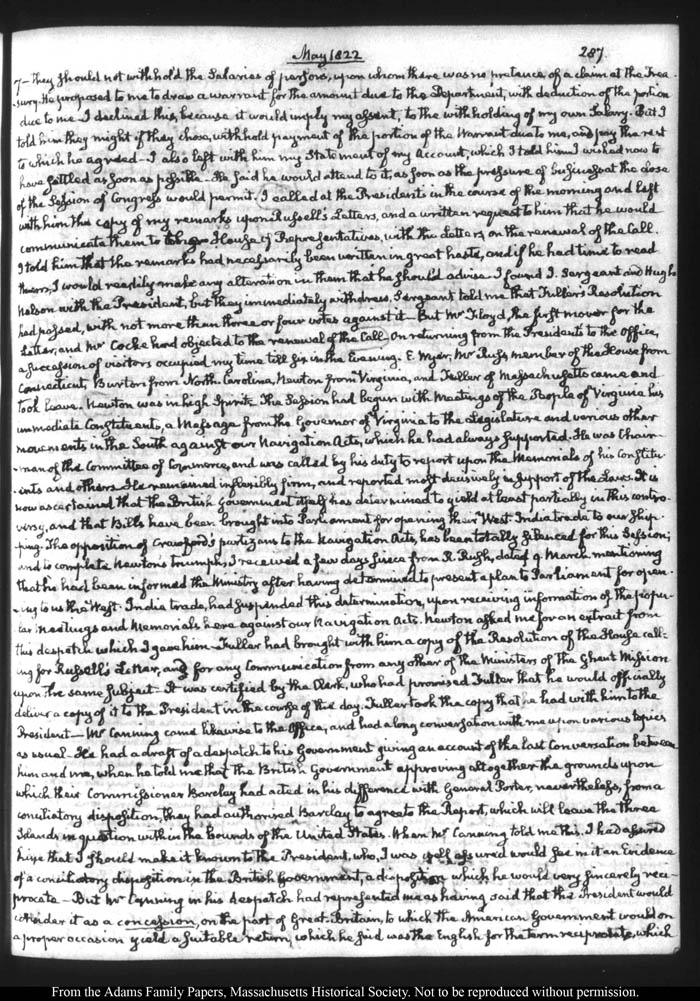 May 1822
287
7 — They should not withhold the Salaries of persons, upon whom there was no pretence of a claim at the Trea-
-sury. He proposed to me to draw a warrant for the amount due to the Department, with deduction of the portion
due to me. I declined this, because it would imply my assent, to the withholding of my own Salary. But I
told him they might if they chose, withhold payment of the portion of the Warrant due to me, and pay the rest
to which he agreed — I also left with him my Statement of my Account, which I told him I wished now to
have settled as soon as possible. He said he would attend to it, as soon as the pressure of business at the close
of the Session of Congress would permit. I called at the President's in the course of the morning and left
with him the copy of my remarks upon Russell's Letters, and a written request to him that he would
communicate them to the House of Representatives, with the Letters, on the renewal of the Call.
I told him that the remarks had necessarily been written in great haste, and if he had time to read
them, I would readily make any alteration in them that he should advise. I found J. Sergeant and Hugh
Nelson with the President, but they immediately withdrew. Sergeant told me that Fuller's Resolution
had passed, with not more than three or four votes against it — But Mr Floyd, the first mover for the
Letter, and Mr Cocke had objected to the renewal of the Call. On returning from the President's to the Office,
a succession of visitors occupied my time till six in the Evening. E. Wyer, Mr Russ member of the House from
Connecticut, Burton from North-Carolina, Newton from Virginia, and Fuller of Massachusetts came and
took leave. Newton was in high Spirits. The Session had begun with Meetings of the People of Virginia his
immediate Constituents, a Message from the Governor of Virginia to the Legislature and various other
movements in the South against our Navigation Acts, which he had always supported. He was Chair-
-man of the Committee of Commerce, and was called by his duty to report upon the Memorials of his Constitu-
-ents and others. He remained inflexibly firm, and reported most decisively in support of the Laws. It is
now ascertained that the British Government itself has determined to yield at least partially in this contro-
versy, and that Bills have been brought into Parliament for opening their West-India trade to our Ship-
-ping. The opposition of Crawford's partizans to the Navigation Acts, has been totally silenced for this Session;
and to complete Newton's triumph, I received a few days since from R. Rush, dated 9 March mentioning
that he had been informed the Ministry after having determined to present a plan to Parliament for open-
-ing to us the West-India trade, had suspended this determination, upon receiving information of the popu-
lar meetings and Memorials here against our Navigation Acts. Newton asked me for an extract from
this despatch which I gave him — Fuller had brought with him a copy of the Resolution of the House call-
ing for Russell's Letter, and for any Communication from any other of the Ministers of the Ghent Mission
upon the same subject — It was certified by the Clerk, who had promised Fuller that he would officially
deliver a copy of it to the President in the course of the day. Fuller took the copy that he had with him to the
President — Mr Canning came likewise to the Office, and had a long conversation with me upon various topics
as usual — He had a draft of a despatch to his Government giving an account of the last Conversation between
him and me, when he told me that the British Government approving altogether the grounds upon
which their Commissioner Barclay had acted in his difference with General Porter, nevertheless, from a
conciliatory disposition, they had authorised Barclay to agree to the Report, which will leave the three
Islands in question within the bounds of the United States. When Mr Canning told me this. I had assured
him that I should make it known to the President, who, I was well assured would see in it an Evidence
of a conciliatory disposition in the British Government, a disposition which he would very sincerely reci-
procate — But Mr Canning in his despatch had represented me as having said that the President would
consider it as a concession, on the part of Great-Britain, to which the American Government would on
a proper occasion yield a suitable return, which he said was the English for the term reciprocate, which
From the Adams Family Papers, Massachusetts Historical Society. Not to be reproduced without permission.